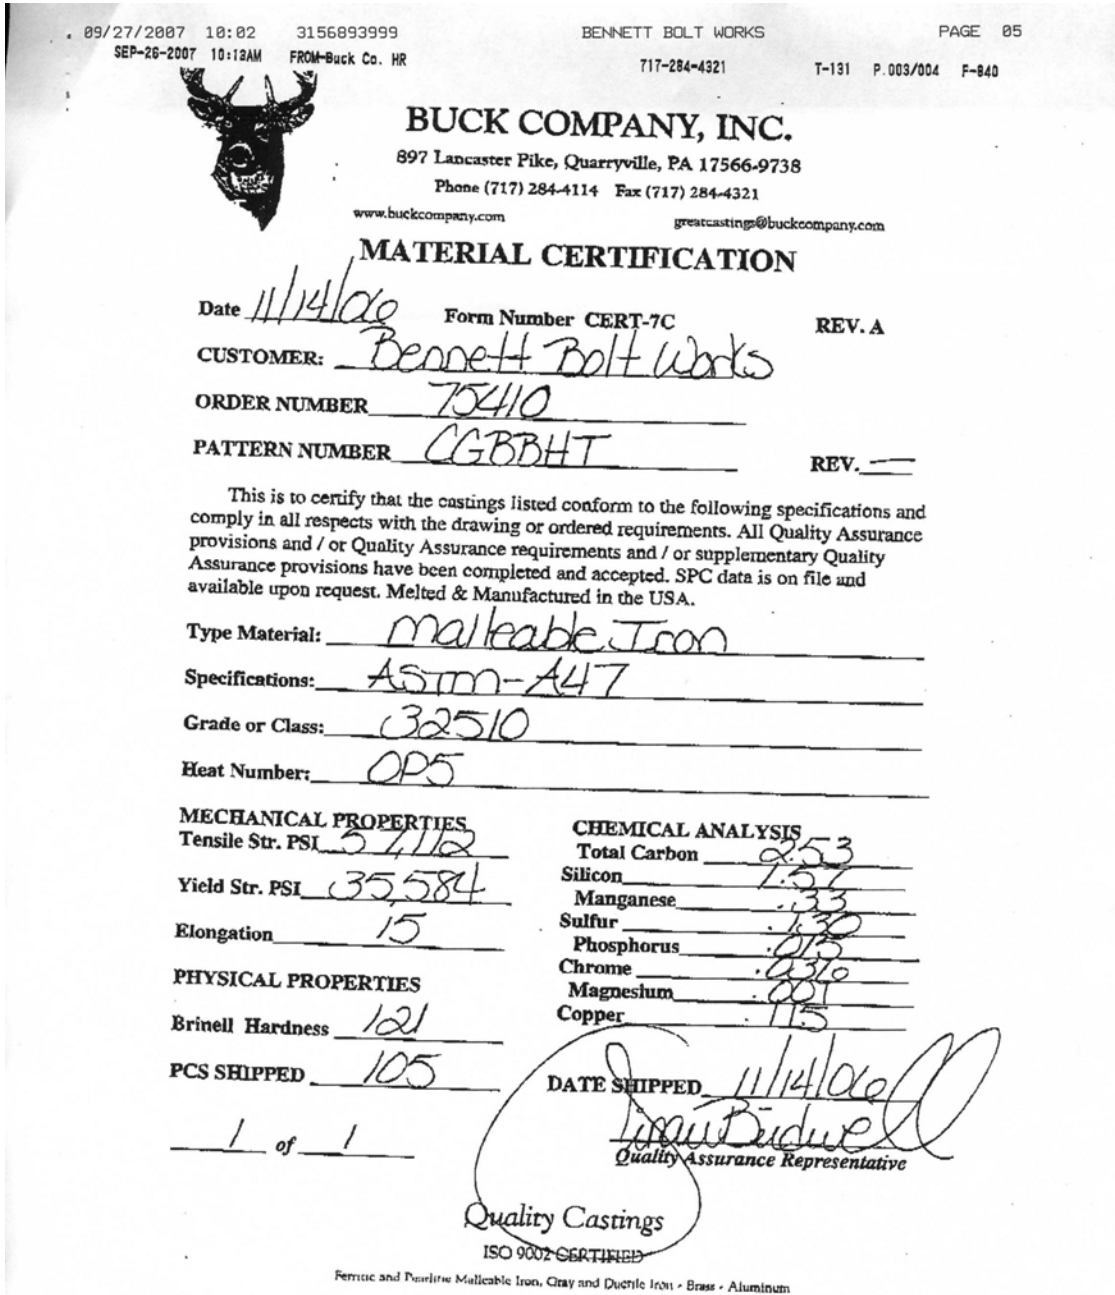 09/27/2007 10:02 3156893999 BENNETT BOLT WORKS PAGE 05
SEP-26-2007 10:13AM FROM-Buck Co. HR 717-284-4321 T-131 P.003/004 F-840
BUCK COMPANY, INC.
897 Lancaster Pike, Quarryville, PA 17566-9738
Phone (717) 284-4114 Fax (717) 284-4321
www.buckcompany.com greatcastings@buckcompany.com
MATERIAL CERTIFICATION
Date 11/14/06 Form Number CERT-7C REV. A
CUSTOMER: Bennett Bolt Works
ORDER NUMBER 75410
PATTERN NUMBER CGBBHT REV. —
This is to certify that the castings listed conform to the following specifications and
comply in all respects with the drawing or ordered requirements. All Quality Assurance
provisions and / or Quality Assurance requirements and / or supplementary Quality
Assurance provisions have been completed and accepted. SPC data is on file and
available upon request. Melted & Manufactured in the USA.
Type Material: Malleable Iron
Specifications: ASTM-A47
Grade or Class: 32510
Heat Number: OP5
MECHANICAL PROPERTIES
Tensile Str. PSI 57,112
Yield Str. PSI 35,584
Elongation 15
PHYSICAL PROPERTIES
Brinell Hardness 121
PCS SHIPPED 105
1 of 1
CHEMICAL ANALYSIS
Total Carbon 2.53
Silicon 1.57
Manganese .33
Sulfur .130
Phosphorus .013
Chrome .0310
Magnesium .001
Copper .115
DATE SHIPPED 11/14/06
Quality Assurance Representative
Quality Castings
ISO 9002 CERTIFIED
Ferritic and Pearlitic Malleable Iron, Gray and Ductile Iron - Brass - Aluminum